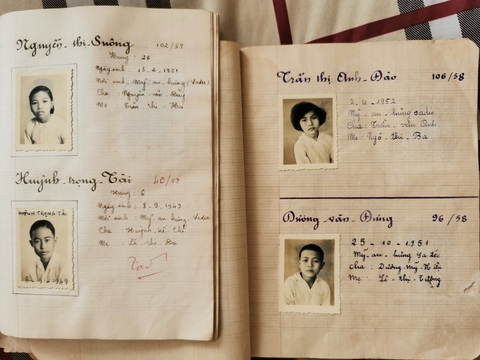 Nguyễn-thị-Sướng 102/57
Hạng : 26
Ngày sinh : 15-2-1951
Nơi sinh : Mỹ-an-hưng (Sađéc)
Cha : Nguyễn-văn
Mẹ : Trần-thị
Huỳnh-trọng-Tài 40/57
Hạng 6
Ngày sinh : 8-9-1949
Nơi sinh : Mỹ-an-hưng, Sađec
Cha : Huỳnh-kế-Chí
Mẹ : Lê-thị-Ba
HUỲNH TRỌNG TÀI
1949
Trần thị Anh-Đào 106/58
1952
Mỹ-an-hưng sađec
Cha : Trần-văn-Anh
Mẹ : Ngô-thị-Ba
Dương-văn-Đúng 96/58
25-10-1951
Mỹ-an-hưng Sa đéc
Cha : Dương-Mỹ
Mẹ : Lê-thị-Tưởng